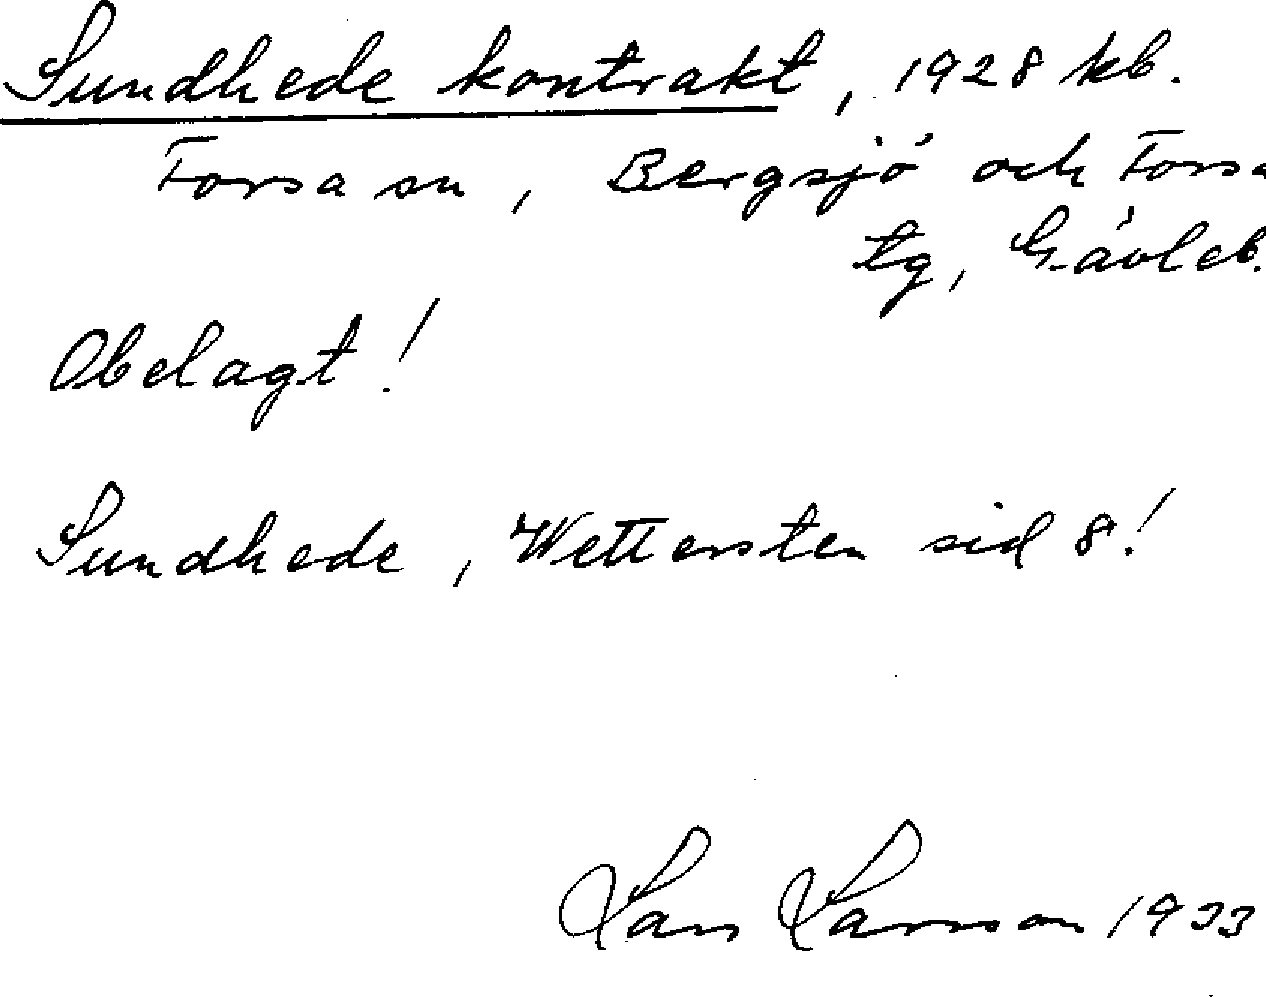 Sundhede kontrakt, 1928 kb.
Forsa sn, Bergsjö och Forsa
tg, Gävleb.
Obelagt!
Sundhede, Wettersten sid 8!
Lars Larsson 1933